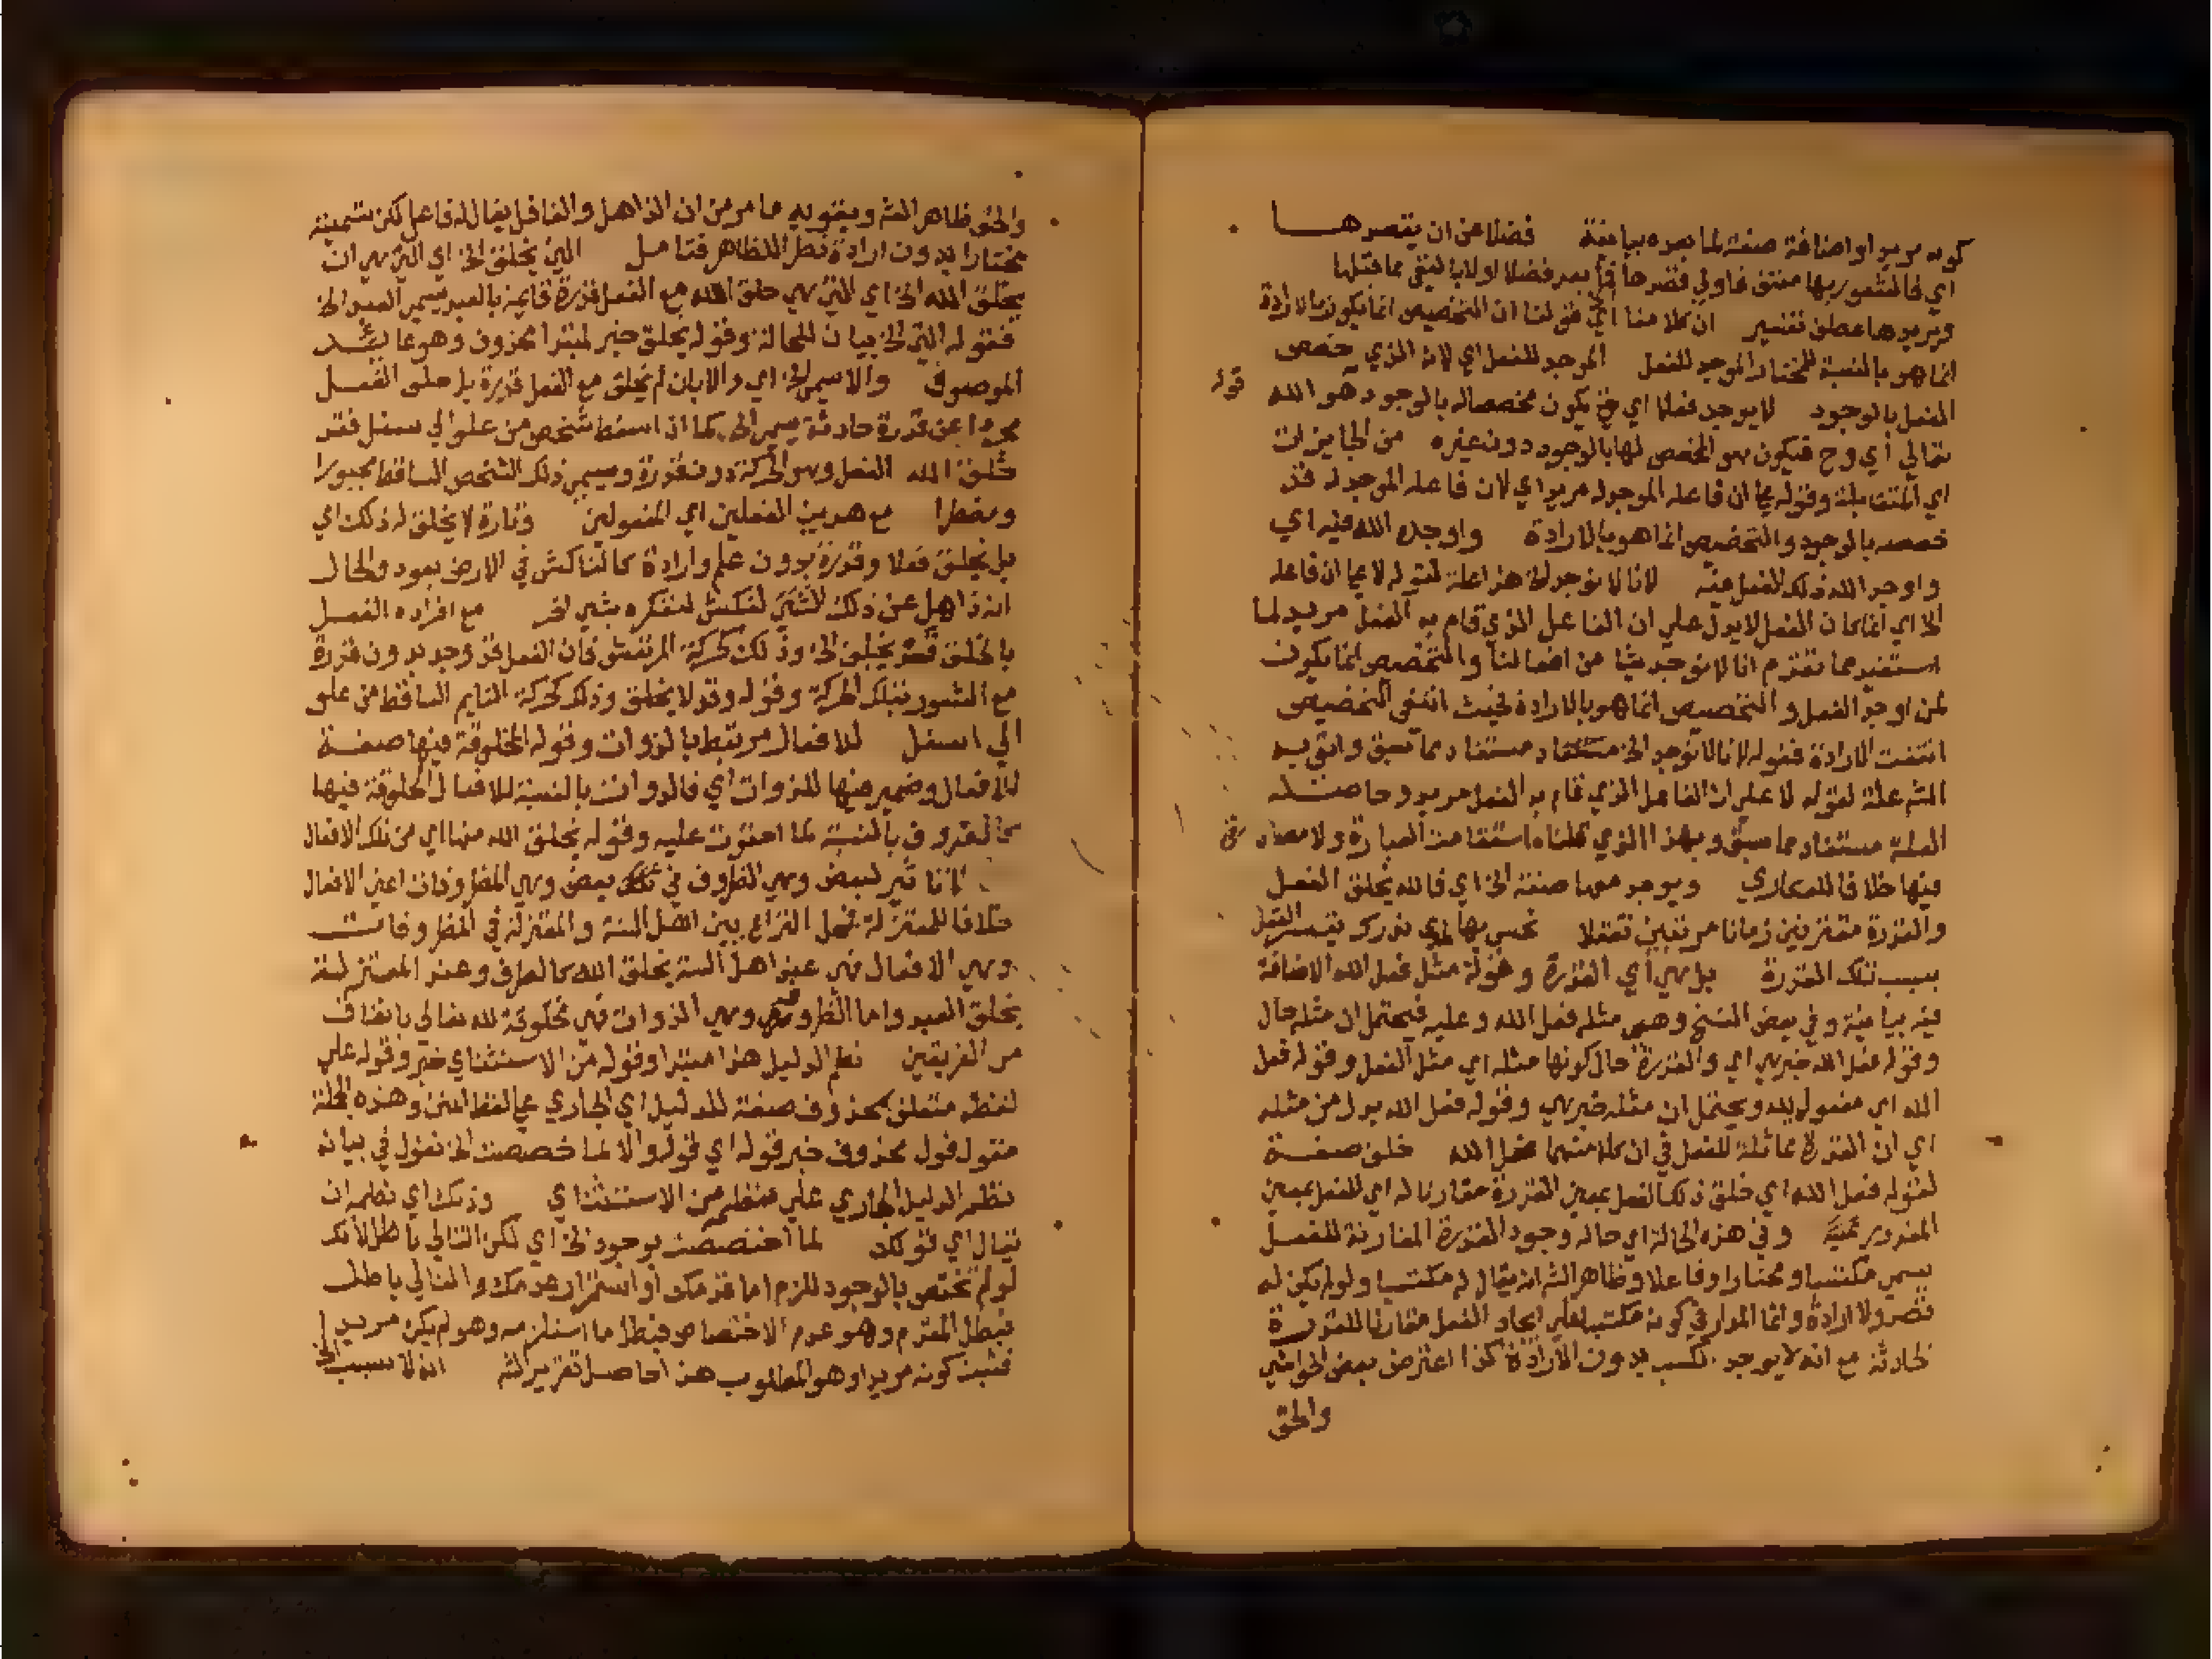 كونه مريدا واضافة صفة لما بعده بيانية فضلا عن ان يقصدها
اي فالشعور بها منتف فاولي قصدها فما بعد فضلا اولي بالنفي مما قبلها
ويريدها عطف تفسير ان كلا منا اي فقولنا ان التخصيص انما يكون بالارادة
انما هو بالنسبة للمختار الموجد للفعل الموجد للفعل اي لان الذي خصص
الفعل بالوجود لا يوجد فعلا اي فح يكون مخصصا له بالوجود هو الله قوله
تعالي اي وح فيكون هو المخصص لها بالوجود دون غيره من الجايزات
اي المتقابلة وقوله علي ان فاعله الموجد له مريد اي لان فاعله الموجد له قد
خصصه بالوجود والتخصيص انما هو بالارادة واوجده الله فيه اي
واوجد الله ذلك الفعل فيه لانا لا نوجد الخ هذا علة لقوله لا علي ان فاعله
الخ اي انما كان الفعل لا يدل علي ان الفاعل الذي قام به الفعل مريد لما
استفيد مما تقدم انا لا نوجد شيئا من افعالنا والتخصيص انما يكون
لمن اوجد الفعل والتخصيص انما هو بالارادة فحيث انتفي التخصيص
انتفت الارادة فقوله لانا لا نوجد الخ مستفاد مما سبق واتي به
الشم علة لقوله لا علي ان الفاعل الذي قام به الفعل مريد وحاصله
العلة مستفاد مما سبق وبهذا الذي قلناه استقامت العبارة ولا مصادرة
فيها خلافا للسكاري ويوجد معها صفة الخ اي فالله يخلق الفعل
والقدرة مقترنين زمانا مرتبين تعقلا نحس بها اي ندرك تيسر الفعل
بسبب تلك القدرة بل هي اي القدرة وقوله مثل فعل الله الاضافة
فيه بيانية وفي بعض النسخ وهي مثله فعل الله وعليه فيحتمل ان مثله حال
وقوله فعل الله خبر هي اي والقدرة حال كونها مثله اي مثل الفعل وقوله فعل
الله اي مفعول لله ويحتمل ان مثله خبر هي وقوله فعل الله بدل من مثله
اي ان القدرة مماثلة للفعل في ان كلا منهما فعل الله خلق صفة
لقوله فعل الله اي خلق ذلك الفعل بمعني القدرة مقارنا له اي للفعل بمعني
المقدور وفي هذه الحالة اي حالة وجود القدرة المقارنة للفعل
يسمي مكتسبا ومختارا وفاعلا وظاهر الشم انه يقال له مكتسبا ولو لم يكن له
قصد ولا ارادة وانما المدار في كونه مكتسبا علي ايجاد الفعل مقارنا للقدرة
الحادثة مع انه لا يوجد كسب بدون الارادة كذا اعترض بعض الحواشي
والحق
والحق ظاهر الشم ويقويه ما مر من ان الذاهل والغافل يقال له فاعل لكن تسميته
مختارا بدون ارادة نظرا للظاهر فتامل التي يخلق الخ اي التي هي ان
يخلق الله الخ اي التي هي خلق الله مع الفعل قدرة قايمة بالعبد يسمي العبد الخ
فقوله التي الخ بيان للحالة وقوله يخلق خبر لمبتدا محذوف وهو عايد
الموصوف والا سمي الخ اي والا بان لم يخلق مع الفعل قدرة بل خلق الفعل
مجردا عن قدرة حادثة يسمي الخ كما اذا سقط شخص من علو الي سفل فقد
خلق الله الفعل وهو الحركة دون قدرة ويسمي ذلك الشخص الساقط مجبورا
ومضطرا مع هذين الفعلين اي المفعولين وتارة لا يخلق له ذلك اي
بل يخلق فعلا وقدرة بدون علم وارادة كالناكش في الارض بعود والحال
انه ذاهل عن ذلك النكش لتفكره بشي اخر مع افراده الفعل
بالخلق فقد يخلق الخ وذلك كحركة المرتعش فان الفعل قد وجد بدون قدرة
مع الشعور بتلك الحركة وقوله وقد لا يخلق وذلك كحركة النايم الساقط من علو
الي اسفل للافعال مرتبط بالذوات وقوله المخلوقة فيها صفة
للافعال وضمير فيها للذوات اي فالذوات بالنسبة للافعال المخلوقة فيها
كالظروف بالنسبة لما احتوت عليه وقوله يخلق الله منها اي من تلك الافعال
لا تاثير لبعض وهي الظروف في بعض وهي المظروفات اعني الافعال
خلافا للمعتزلة فمحل النزاع بين اهل السنة والمعتزلة في المظروفات
وهي الافعال فهي عند اهل السنة يخلق الله كالظرف وعند المعتزلة
يخلق العبد واما الظروف وهي الذوات فهي مخلوقة لله تعالي باتفاق
من الفريقين نظم الدليل هذا مبتدا وقوله من الاستثناي خبر وقوله علي
لفظه متعلق بمحذوف صفة للدليل اي الجاري علي لفظ المتن وهذه الجملة
مقول قول محذوف خبر قوله اي قوله والا لما خصصت الخ نقول في بيانه
نظم الدليل الجاري علي منظم من الاستثناي وذلك اي نظمه ان
يقال اي قولك لما اختصصت بوجود الخ اي لكن التالي باطل لانك
لو لم تختص بالوجود للزم اما قدمك او استمرار عدمك والتالي باطل
فبطل المقدم وهو عدم الاختصاص فبطل ما استلزمه وهو لم يكن مريدا
فثبت كونه مريدا وهو المطلوب هذا حاصل تقرير الشم انه لا سبب الخ